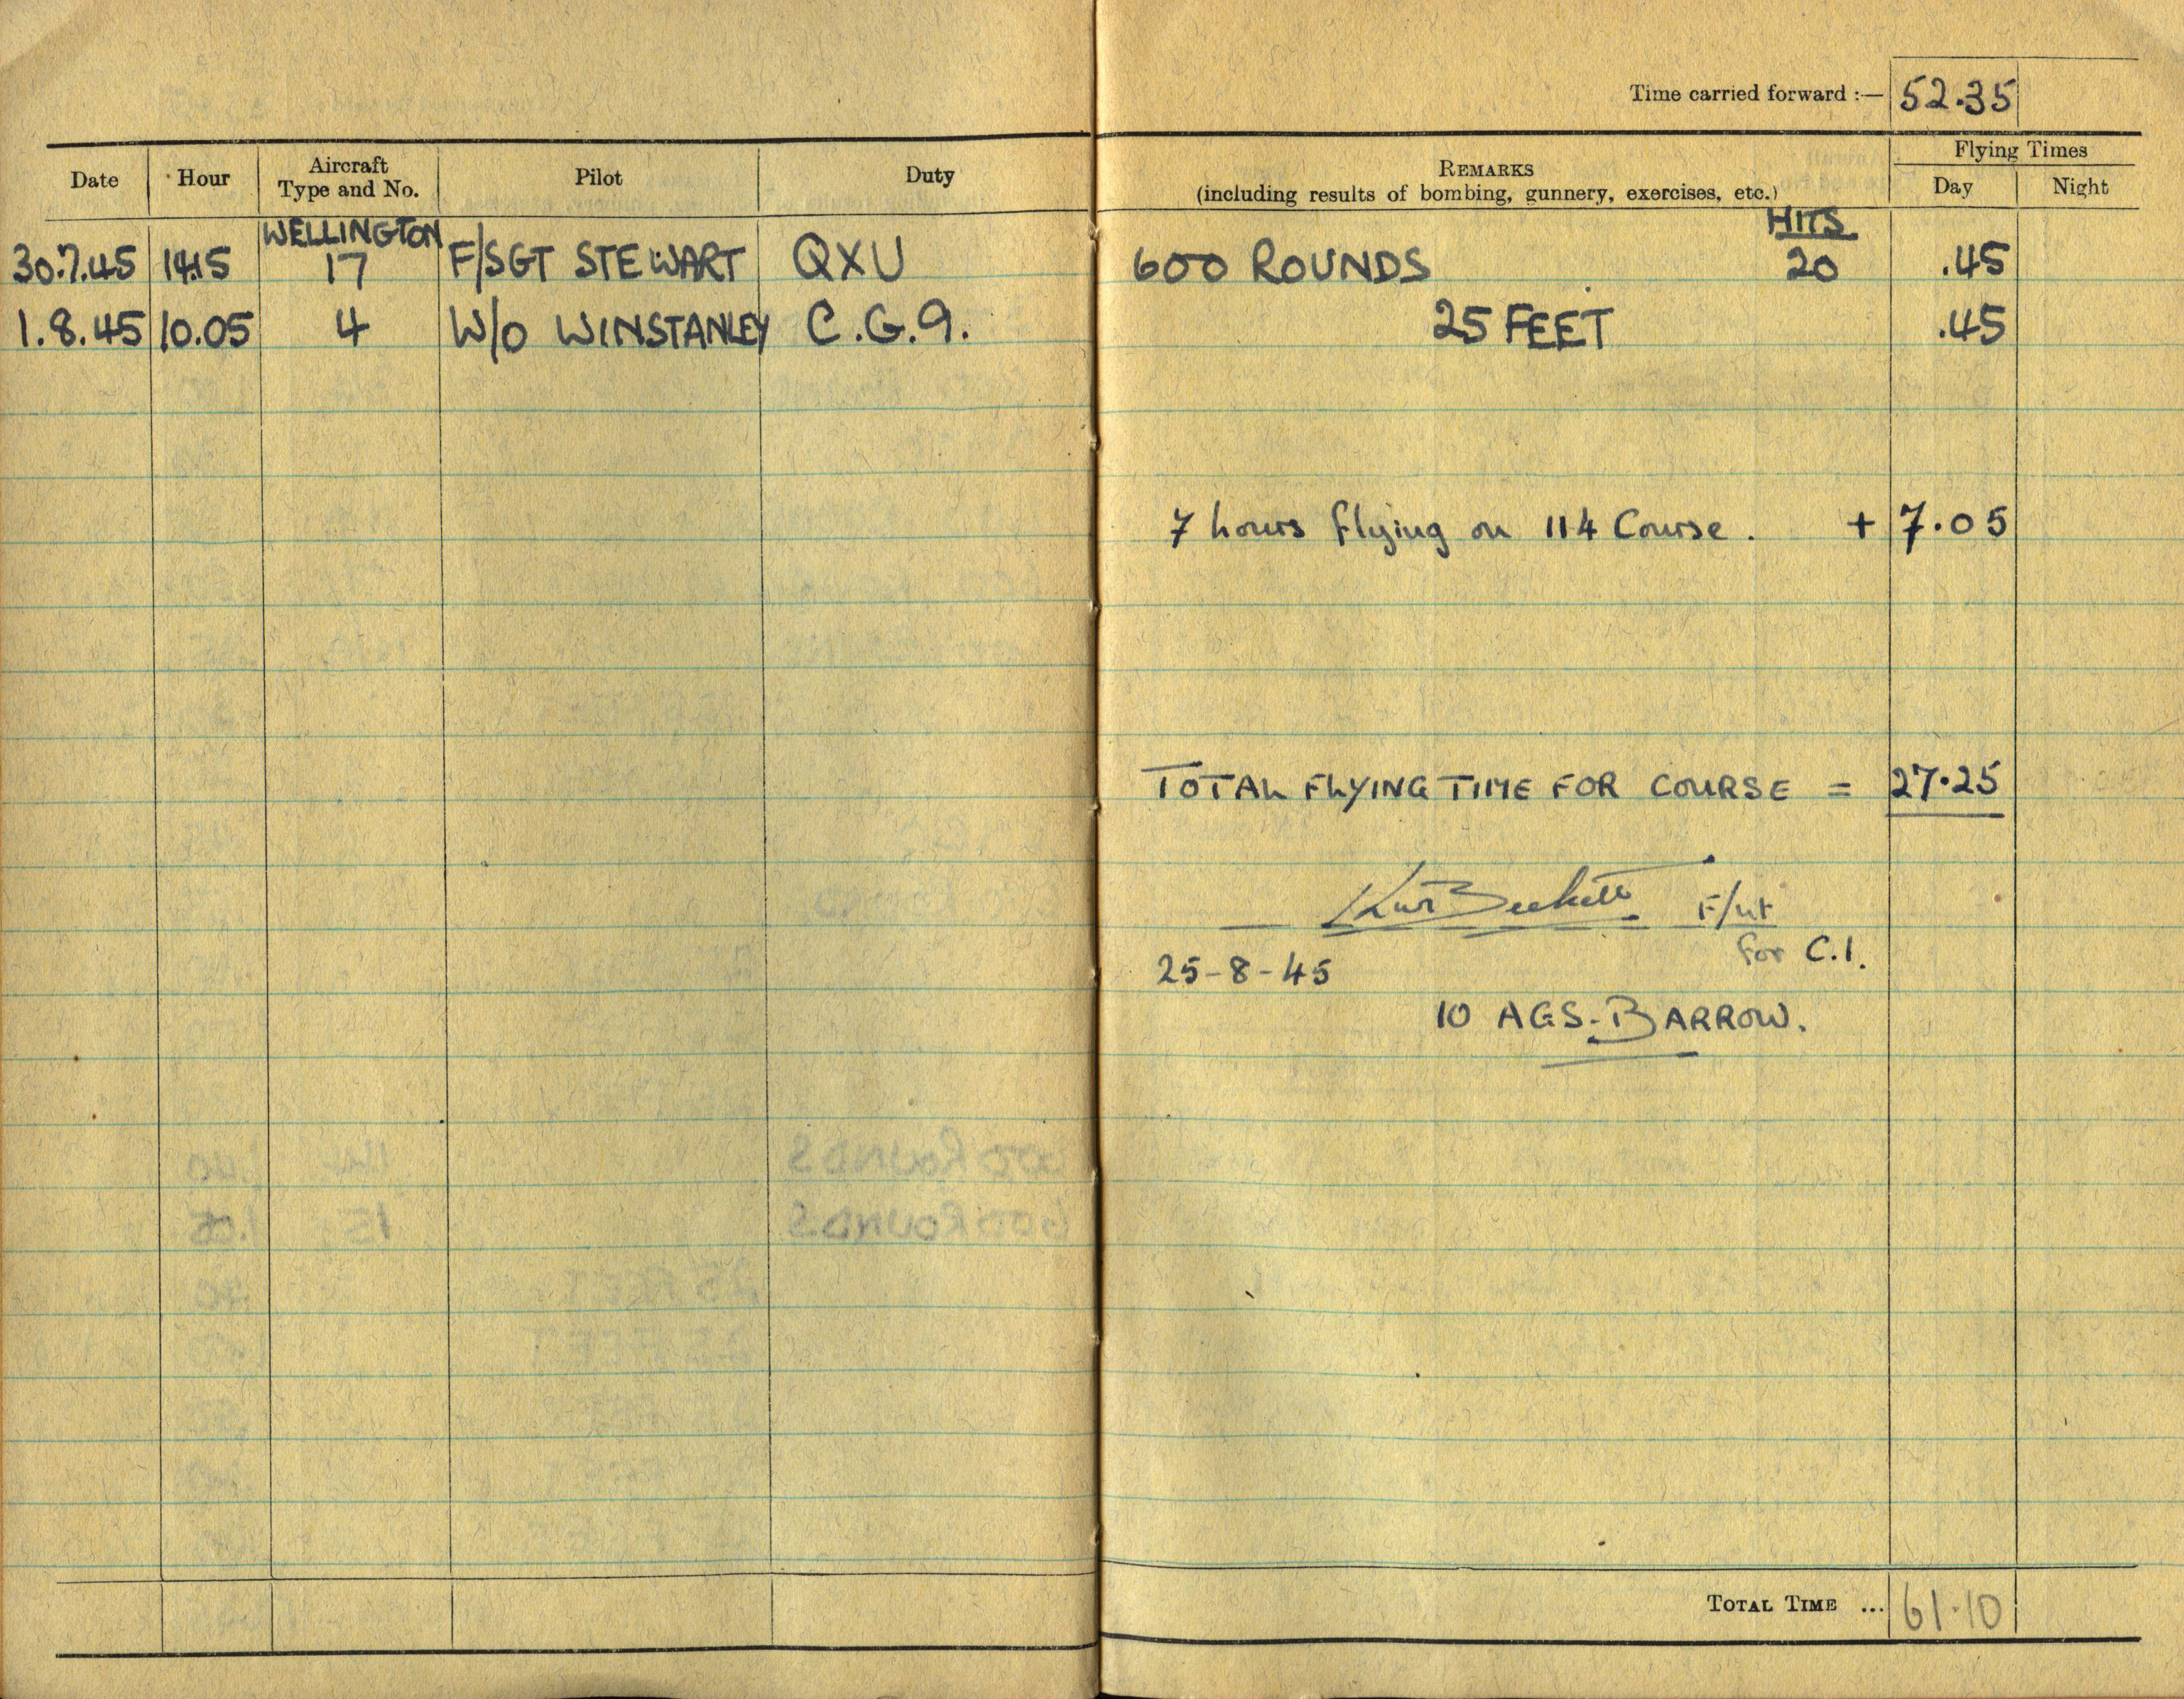 Time carried forward :— 52.35
Date Hour Aircraft Type and No. Pilot Duty REMARKS (including results of bombing, gunnery, exercises, etc.) Flying Times Day Night
WELLINGTON HITS
30.7.45 14.15 17 F/SGT STEWART QXU 600 ROUNDS 20 .45
1.8.45 10.05 4 W/O WINSTANLEY C.G.9. 25 FEET .45
7 hours flying on 114 Course. + 7.05
TOTAL FLYING TIME FOR COURSE = 27.25
Beckett F/Lt
for C.I.
25-8-45
10 AGS. BARROW.
TOTAL TIME ... 61.10